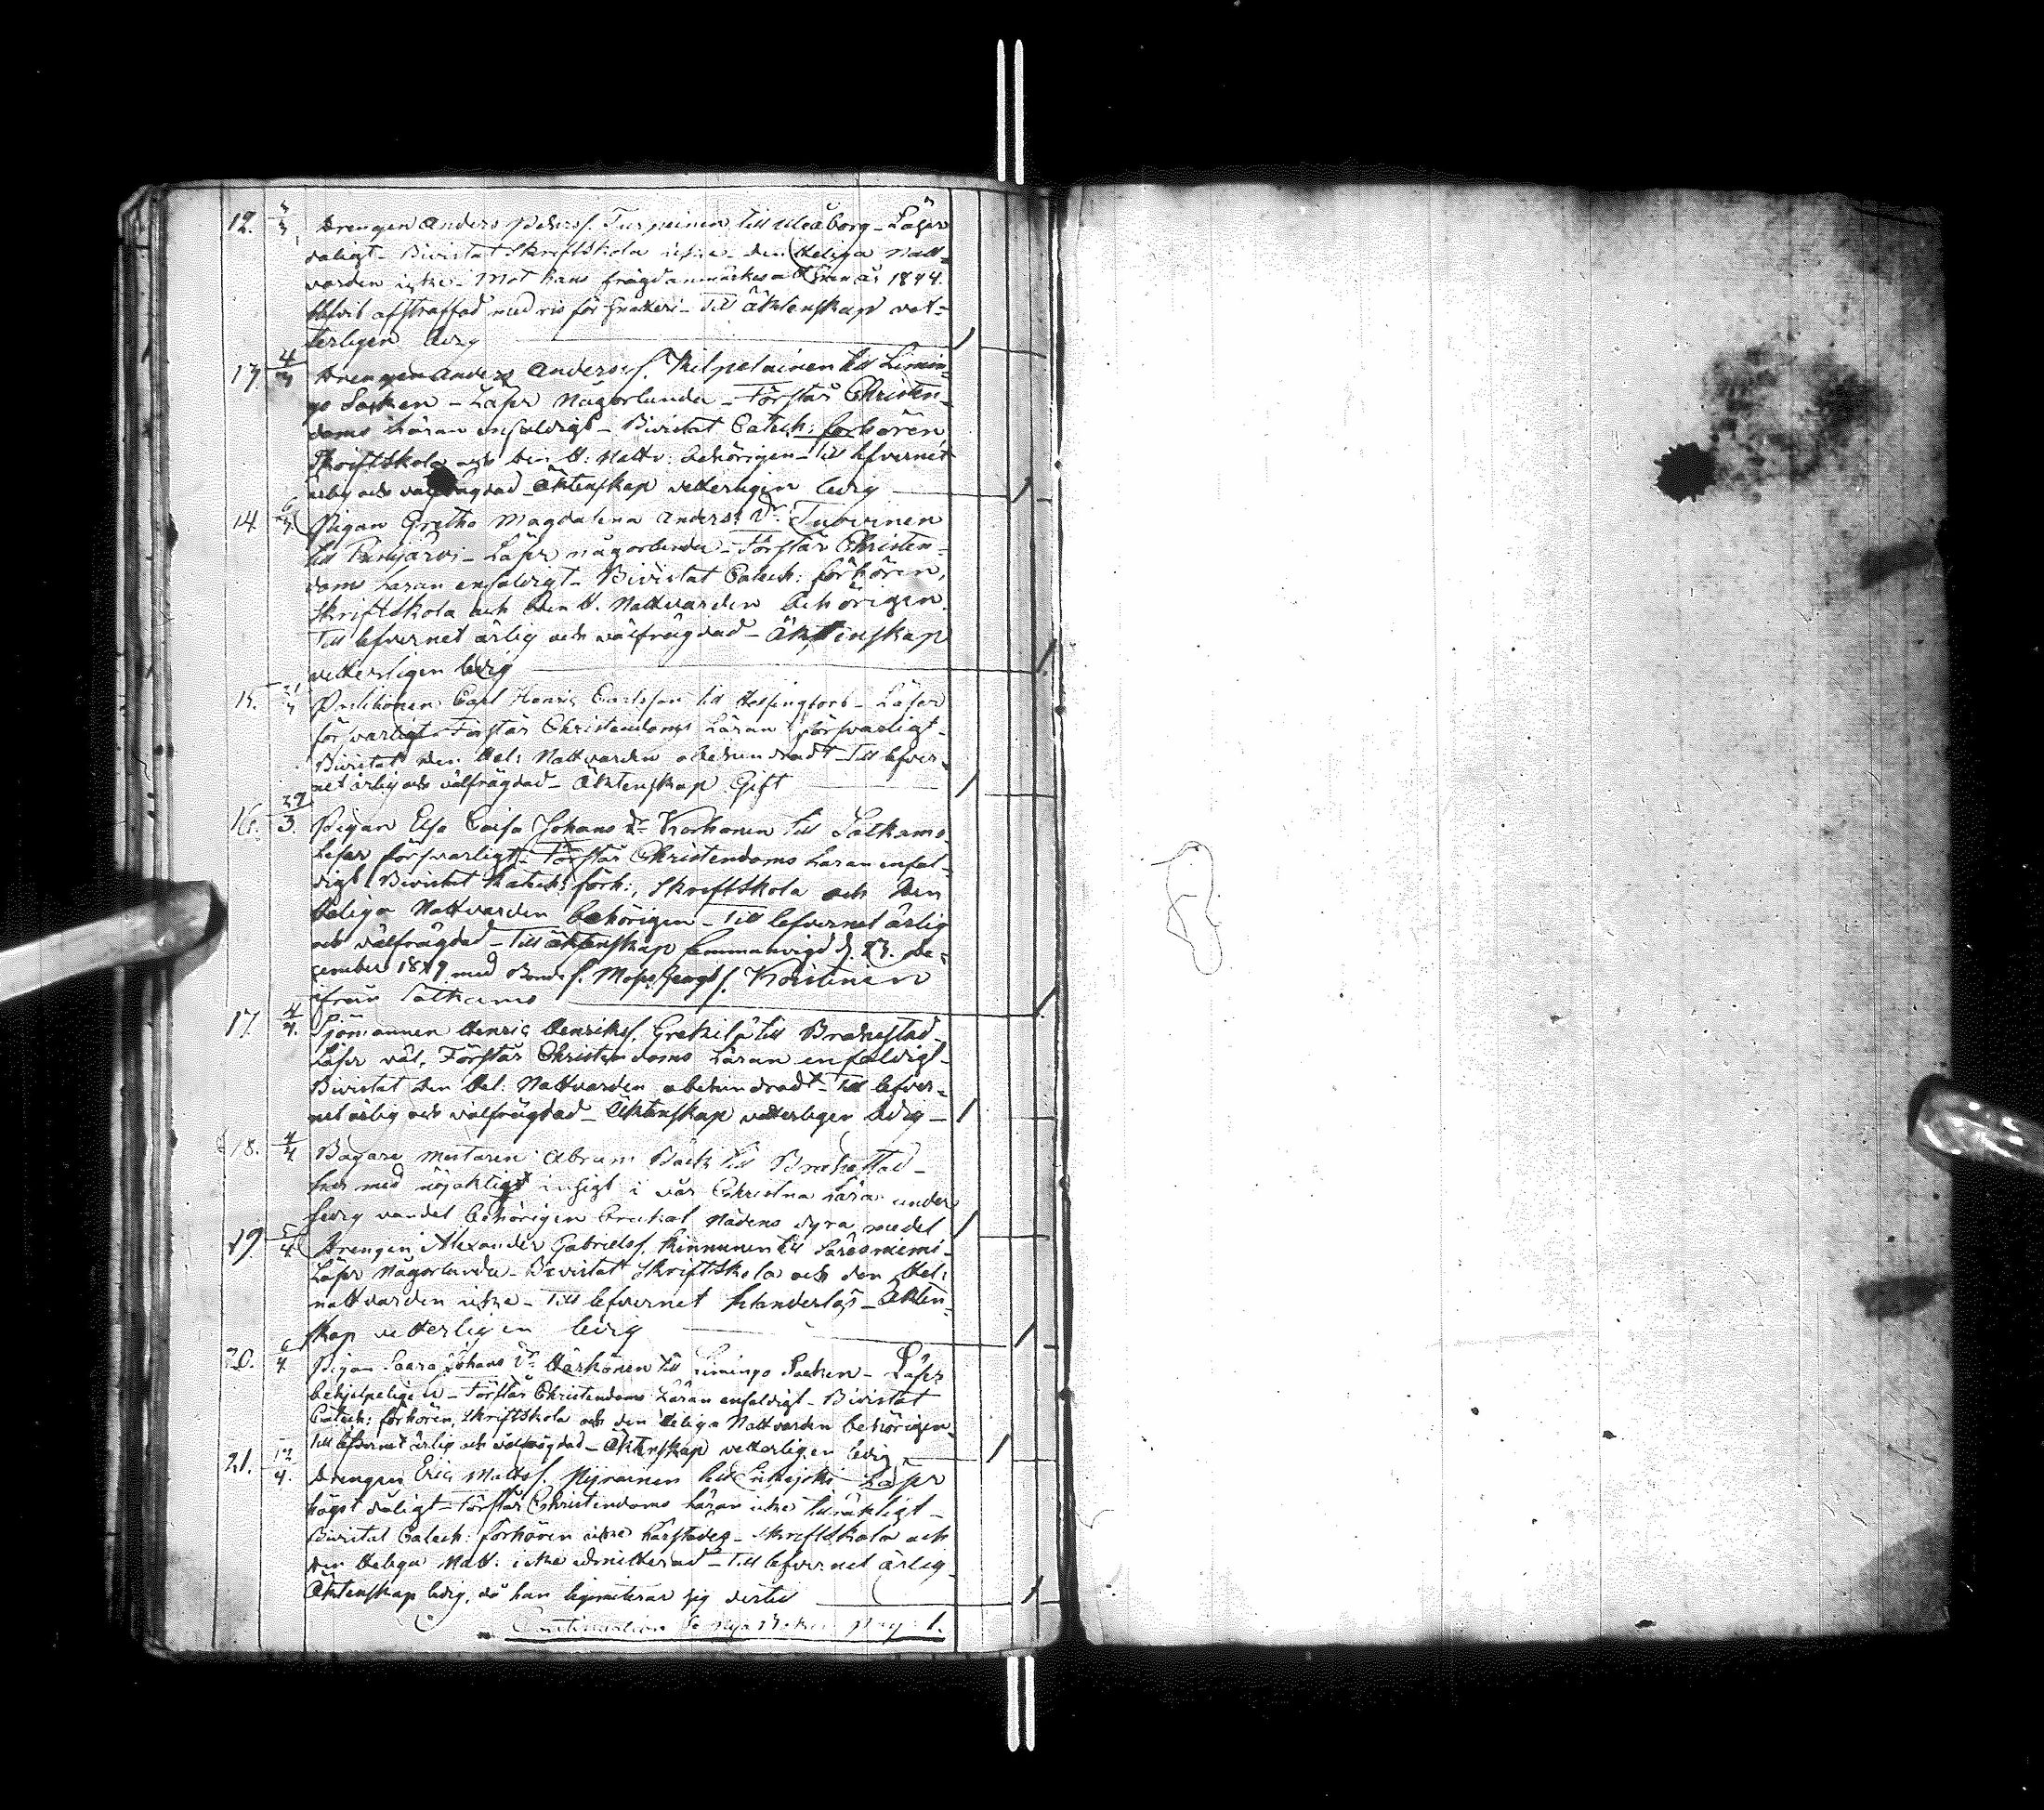 12. 3/3. Drengen Anders Pehrss. Turpeinen till Uleåborg - Läser
daligt - Bivistat Skriftskola icke - den Heliga Natt-
varden icke - Mot hans frägd anmärkes att han år 1844.
blifvit afstraffad med ris för - Till Äktenskap vet-
terligen ledig
13. 4/3 Drengen Anders Anderss. Kilpelainen till Limin-
go Socken - Läser Någorlunda - Förstår Christen-
doms läran enfaldigt - Bivistat Catech: forhören
Skriftskola och den H: Nattv: behörigen - till lefvernet
ärlig och välfrägdad - Äktenskap vetterligen ledig
14. 6/3 Pigan Gretha Magdalena Anders: Dr. Tuovinen
till Puhjärvi - Läser någorlunda - Förstår Christen-
doms Läran enfaldigt - Bivistat Catech: förhören,
Skriftskola och den H. Nattvarden behörigen.
Till lefvernet ärlig och välfrägdad - Äktenskap
vetterligen ledig
15. 21/3 Carl Henric Carlsson till Helsingfors - Läser
försvarligt - Förstår Christendoms Läran försvarligt -
Bivistat den Hel: Nattvarden obehindradt - Till lefver-
net ärlig och välfrägdad - Äktenskap Gift
16. 29/3. Pigan Elsa Caisa Johans Dr. Korhonen till Sotkamo.
Läser försvarligt - Förstår Christendoms Läran enfal-
digt. Bivistat Katech: förh:, Skriftskola och Den
heliga Nattvarden behörigen - Till lefvernet ärlig
och välfrägdad - Till äktenskap sammanvigd d. 23. De-
cember 1849 med Bondes. Mosis Georgs. Korhinen
ifrån Sotkamo
17. 4/4. Sjömannen Henric Henrikss. Grekilä till Brahestad -
Läser väl, Förstår Christendoms Läran enfaldigt -
Bivistat den Hel: Nattvarden obehindradt - Till lefver-
net ärlig och välfrägdad - Äktenskap vetterligen ledig -
18. 4/4 Bagare mästaren Abram Bäck till Brahestad -
har med nöjaktigt insigt i vår Christna Lära under
sedig vandel behörigen brukat Nådens dyra medel
19. 5/4 Drengen Alexander Gabrielss. Kinnunen till Säräsniemi -
Läser Någorlunda - Bivistat Skriftskola och den Hel:
nattvarden icke - Till lefvernet klanderlös - Äkten-
skap vetterligen ledig
20. 6/4 Pigan Saara Johans Dr. Härkönen till Limingo Socken - Läser
behjelpeligen - Förstår Christendoms Läran enfaldigt - Bivistat
Catech: förhören, Skriftskola och den Heliga Nattvarden behörigen -
Till lefvernet ärlig och välfrägdad - Äktenskap vetterligen ledig
21. 12/4. Drengen Eric Matts. till - Läser
högst dåligt - Förstår Christendoms Läran icke tillräkligt -
Bivistat Catech: förhören icke härstädes - Skriftskola och
den Heliga Natt. icke admitterad - Till lefvernet ärlig -
Äktenskap ledig, då han legimiterar sig dertill
Continuation se Nya Boken pag: 1.